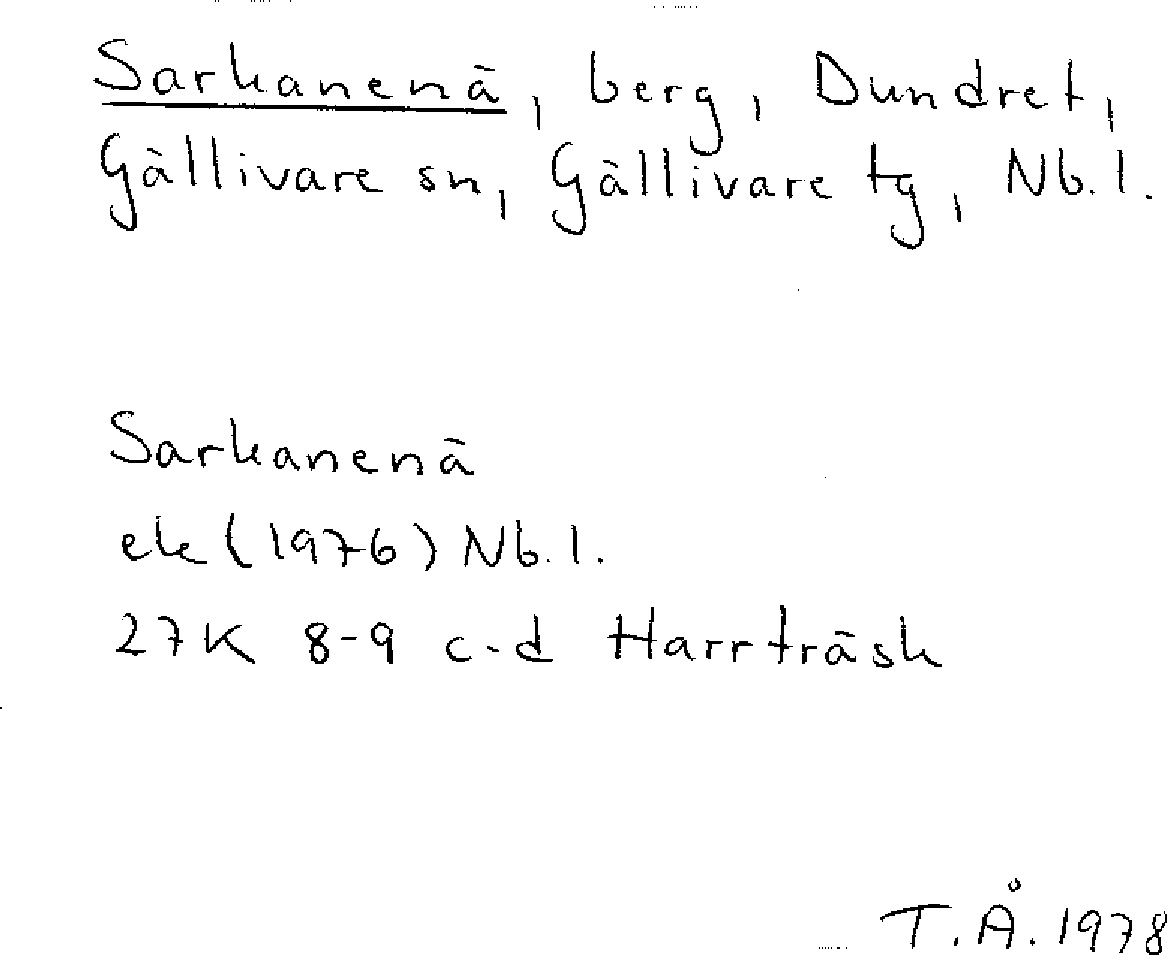 Sarkanenä, berg, Dundret,
Gällivare sn, Gällivare tg, Nb.l.
Sarkanenä
ek (1976) Nb.l.
27K 8-9 c-d Harrträsk
T.Å. 1978